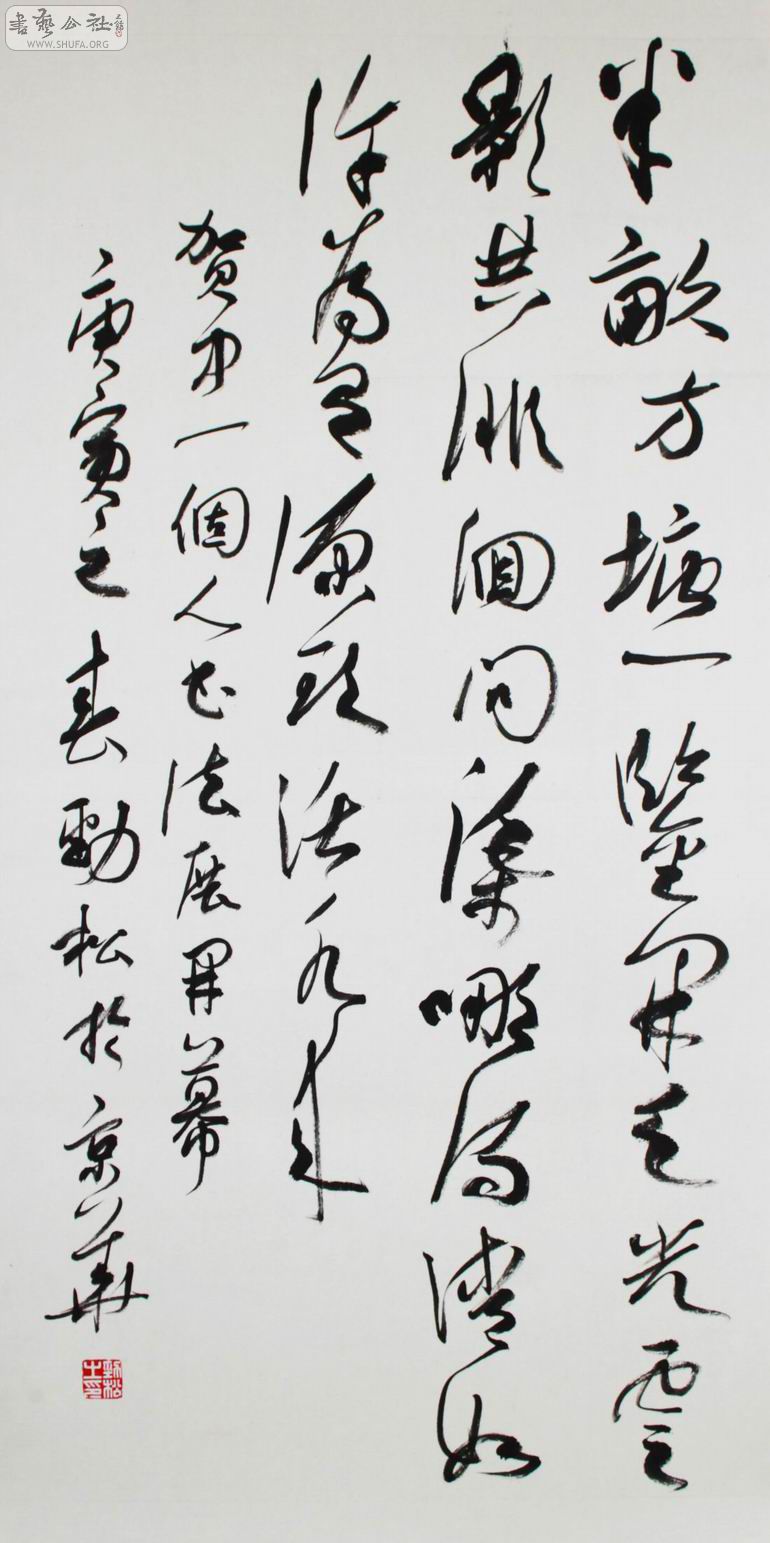 書藝公社
WWW.SHUFA.ORG
半畝方塘一鑒開天光雲
影共徘徊問渠哪得清如
許為有源頭活水來
賀中一個人書法展開幕
庚寅之春勁松於京華
勁松之印